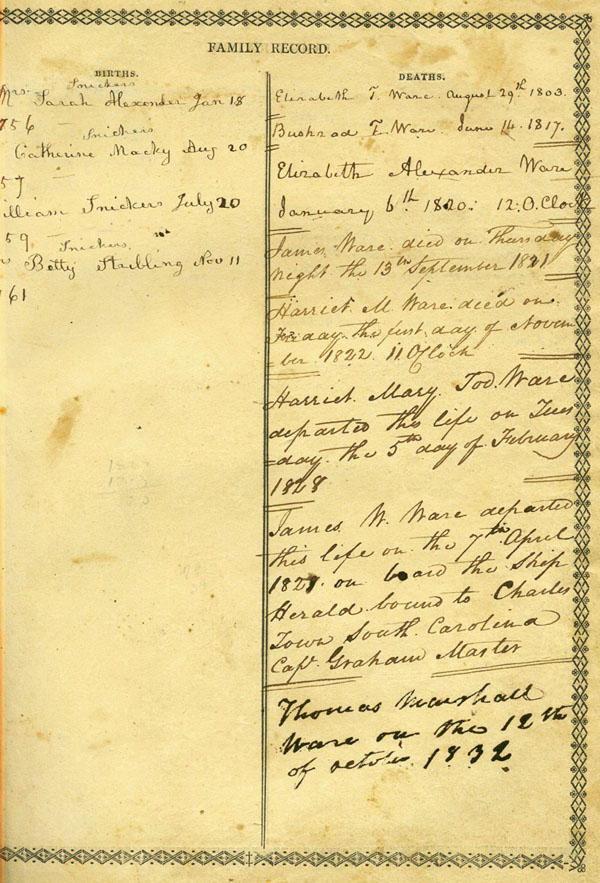 FAMILY RECORD.
BIRTHS.
Snickers
Mrs. Sarah Alexander Jan 18
756
Snickers
Catherine Macky Aug 20
57
illiam Snickers July 20
59 Snickers
Betty Stribling Nov 11
161
DEATHS.
Elizabeth T. Ware. August 29th 1803.
Bushrod T. Ware. June 14. 1817.
Elizabeth Alexander Ware
January 6th 1820. 12.O.Clock
James Ware died on Thursday
Night the 13th September 1821
Harriet M. Ware died on
Friday the first day of Novem
ber 1822. 11 O'Clock
Harriet. Mary. Tod. Ware
departed this life on Tues
=day. the 5th day of February
1828
James. W. Ware departed
this life on the 7th April
182 on board the Ship
Herald bound to Charles
Town South. Carolina
Capt. Graham Master
Thomas Marshall
Ware on the 12th
of 1832